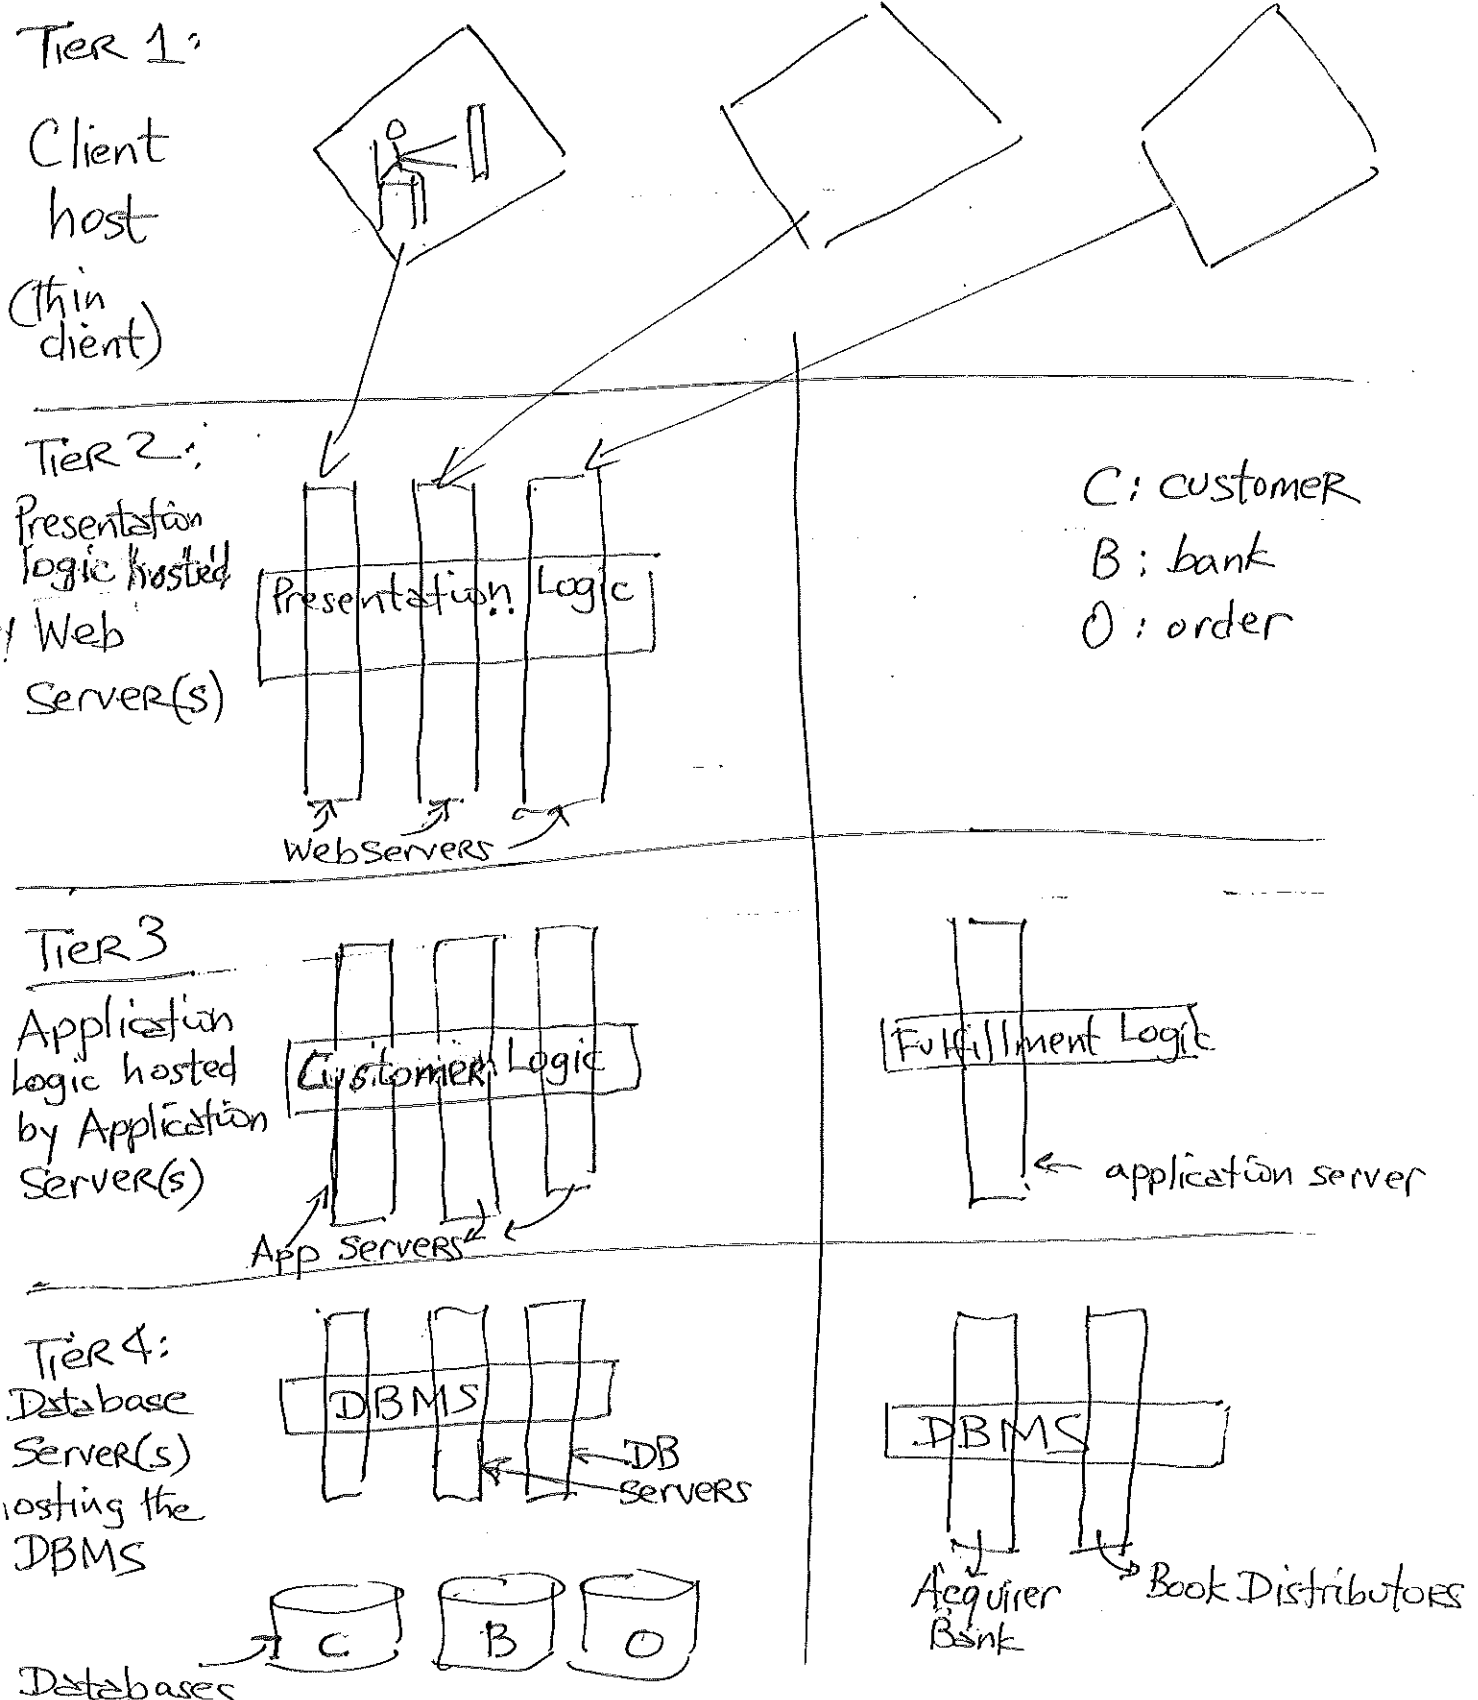 Tier 1:
Client
host
(thin
client)
Tier 2:
Presentation
logic hosted
Web
Server(s)
Presentation Logic
WebServers
C: customer
B: bank
O: order
Tier 3
Application
Logic hosted
by Application
Server(s)
Customer Logic
App Servers
Fulfillment Logic
application server
Tier 4:
Database
Server(s)
hosting the
DBMS
DBMS
DB
Servers
C
B
O
Databases
DBMS
Acquirer
Bank
Book Distributors